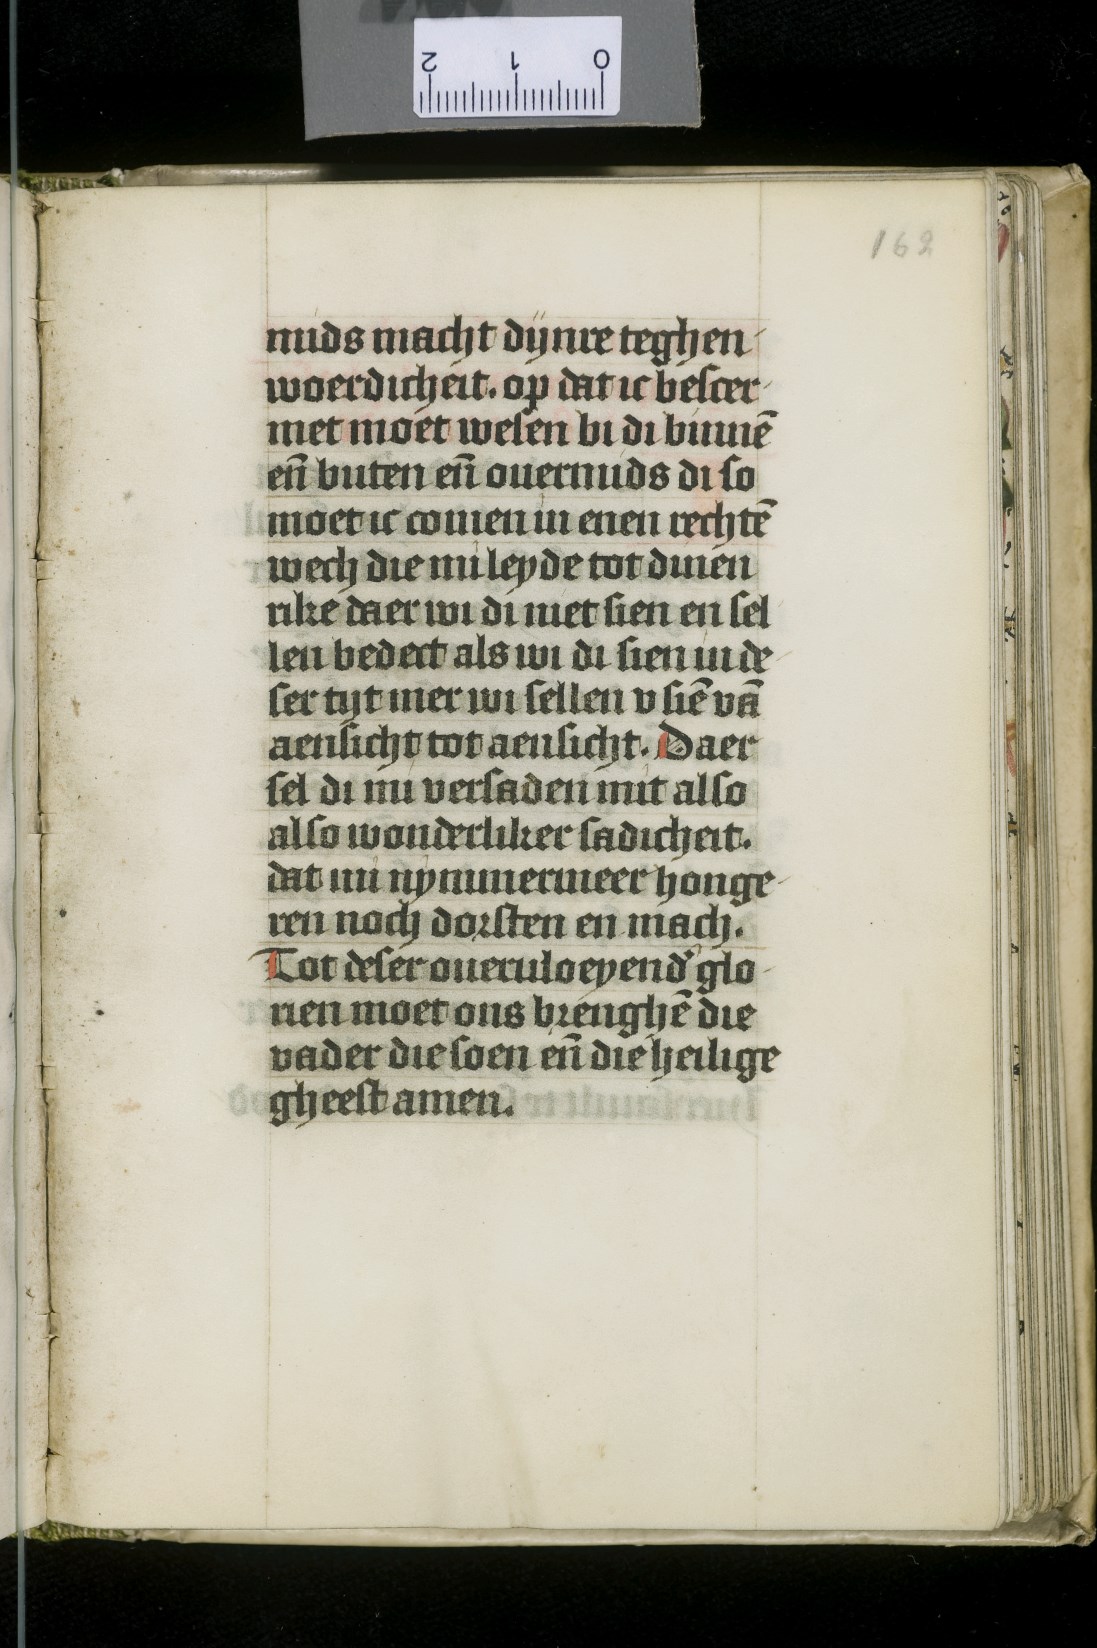 2 1 0
162
mids macht dijnre teghen
woerdicheit. op dat ic bescer
met moet wesen bi di binnē
en̄ buten en̄ ouermids di so
moet ic comen in enen rechtē
wech die mi leyde tot dinen
rike daer wi di niet sien en sel
len bedect als wi di sien in de
ser tijt mer wi sellen v siē vā
aensicht tot aensicht. Daer
sel di mi versaden mit also
also wonderliker sadicheit.
dat mi nymmermeer honge
ren noch dorsten en mach.
Tot deser oueruloeyend' glo
rien moet ons brenghē die
vader die soen en̄ die heilige
gheest amen.